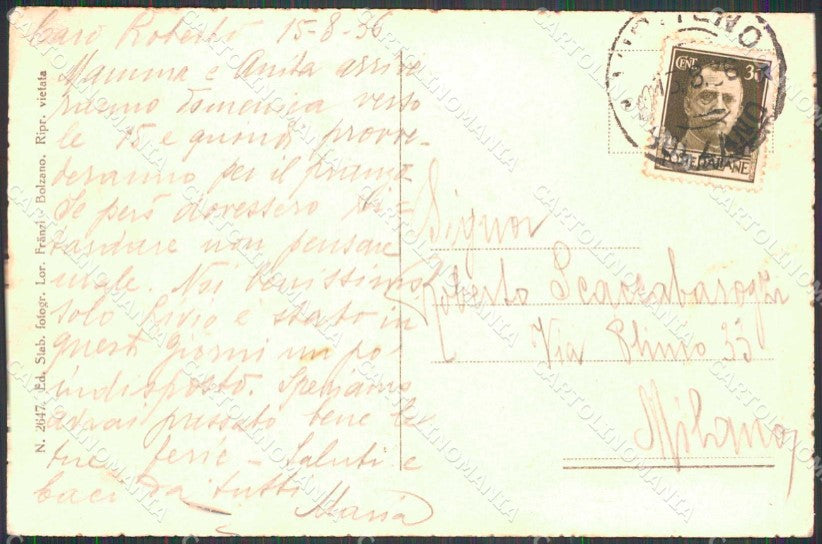 Caro Roberto 15-8-36
Mamma e Anita arrive
ranno domenica verso
le 15 e quindi provve-
deranno per il pranzo
Se però dovessero ri-
tardare non pensare
male. Noi benissimo
solo Livio è stato in
questi giorni un po'
indisposto. Speriamo
avrai passato bene le
tue ferie - Saluti e
baci da tutti
Maria
N. 2647. Ed. Stab. fotogr. Lor. Fränzl, Bolzano. Ripr. vietata
CENT 30
POSTE ITALIANE
Signor
Roberto
Via Plinio 33
Milano
CARTOLINOMANIA